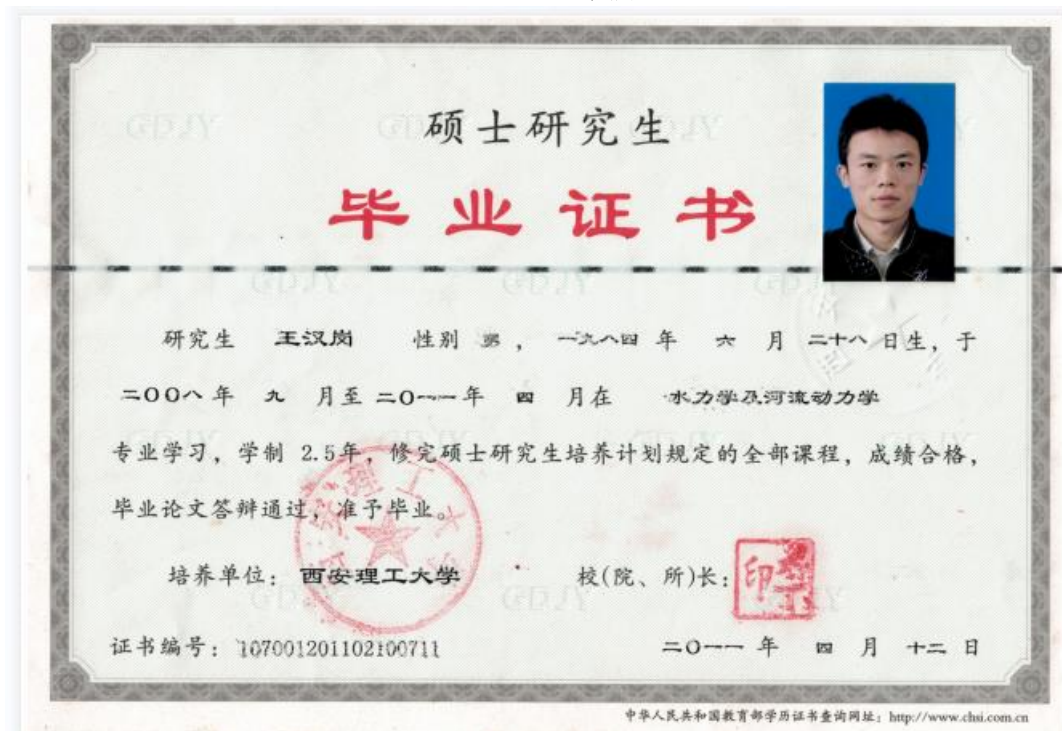 硕士研究生
毕业证书
研究生 王汉岗 性别 男，一九八四年 六 月 二十八 日生，于
二〇〇八年 九 月至二〇一一年 四 月在 水力学及河流动力学
专业学习，学制 2.5年，修完硕士研究生培养计划规定的全部课程，成绩合格，
毕业论文答辩通过，准予毕业。
西安理工大学
培养单位：西安理工大学 校(院、所)长：
印
证书编号：107001201102100711 二〇一一年 四 月 十二 日
中华人民共和国教育部学历证书查询网址：http://www.chsi.com.cn